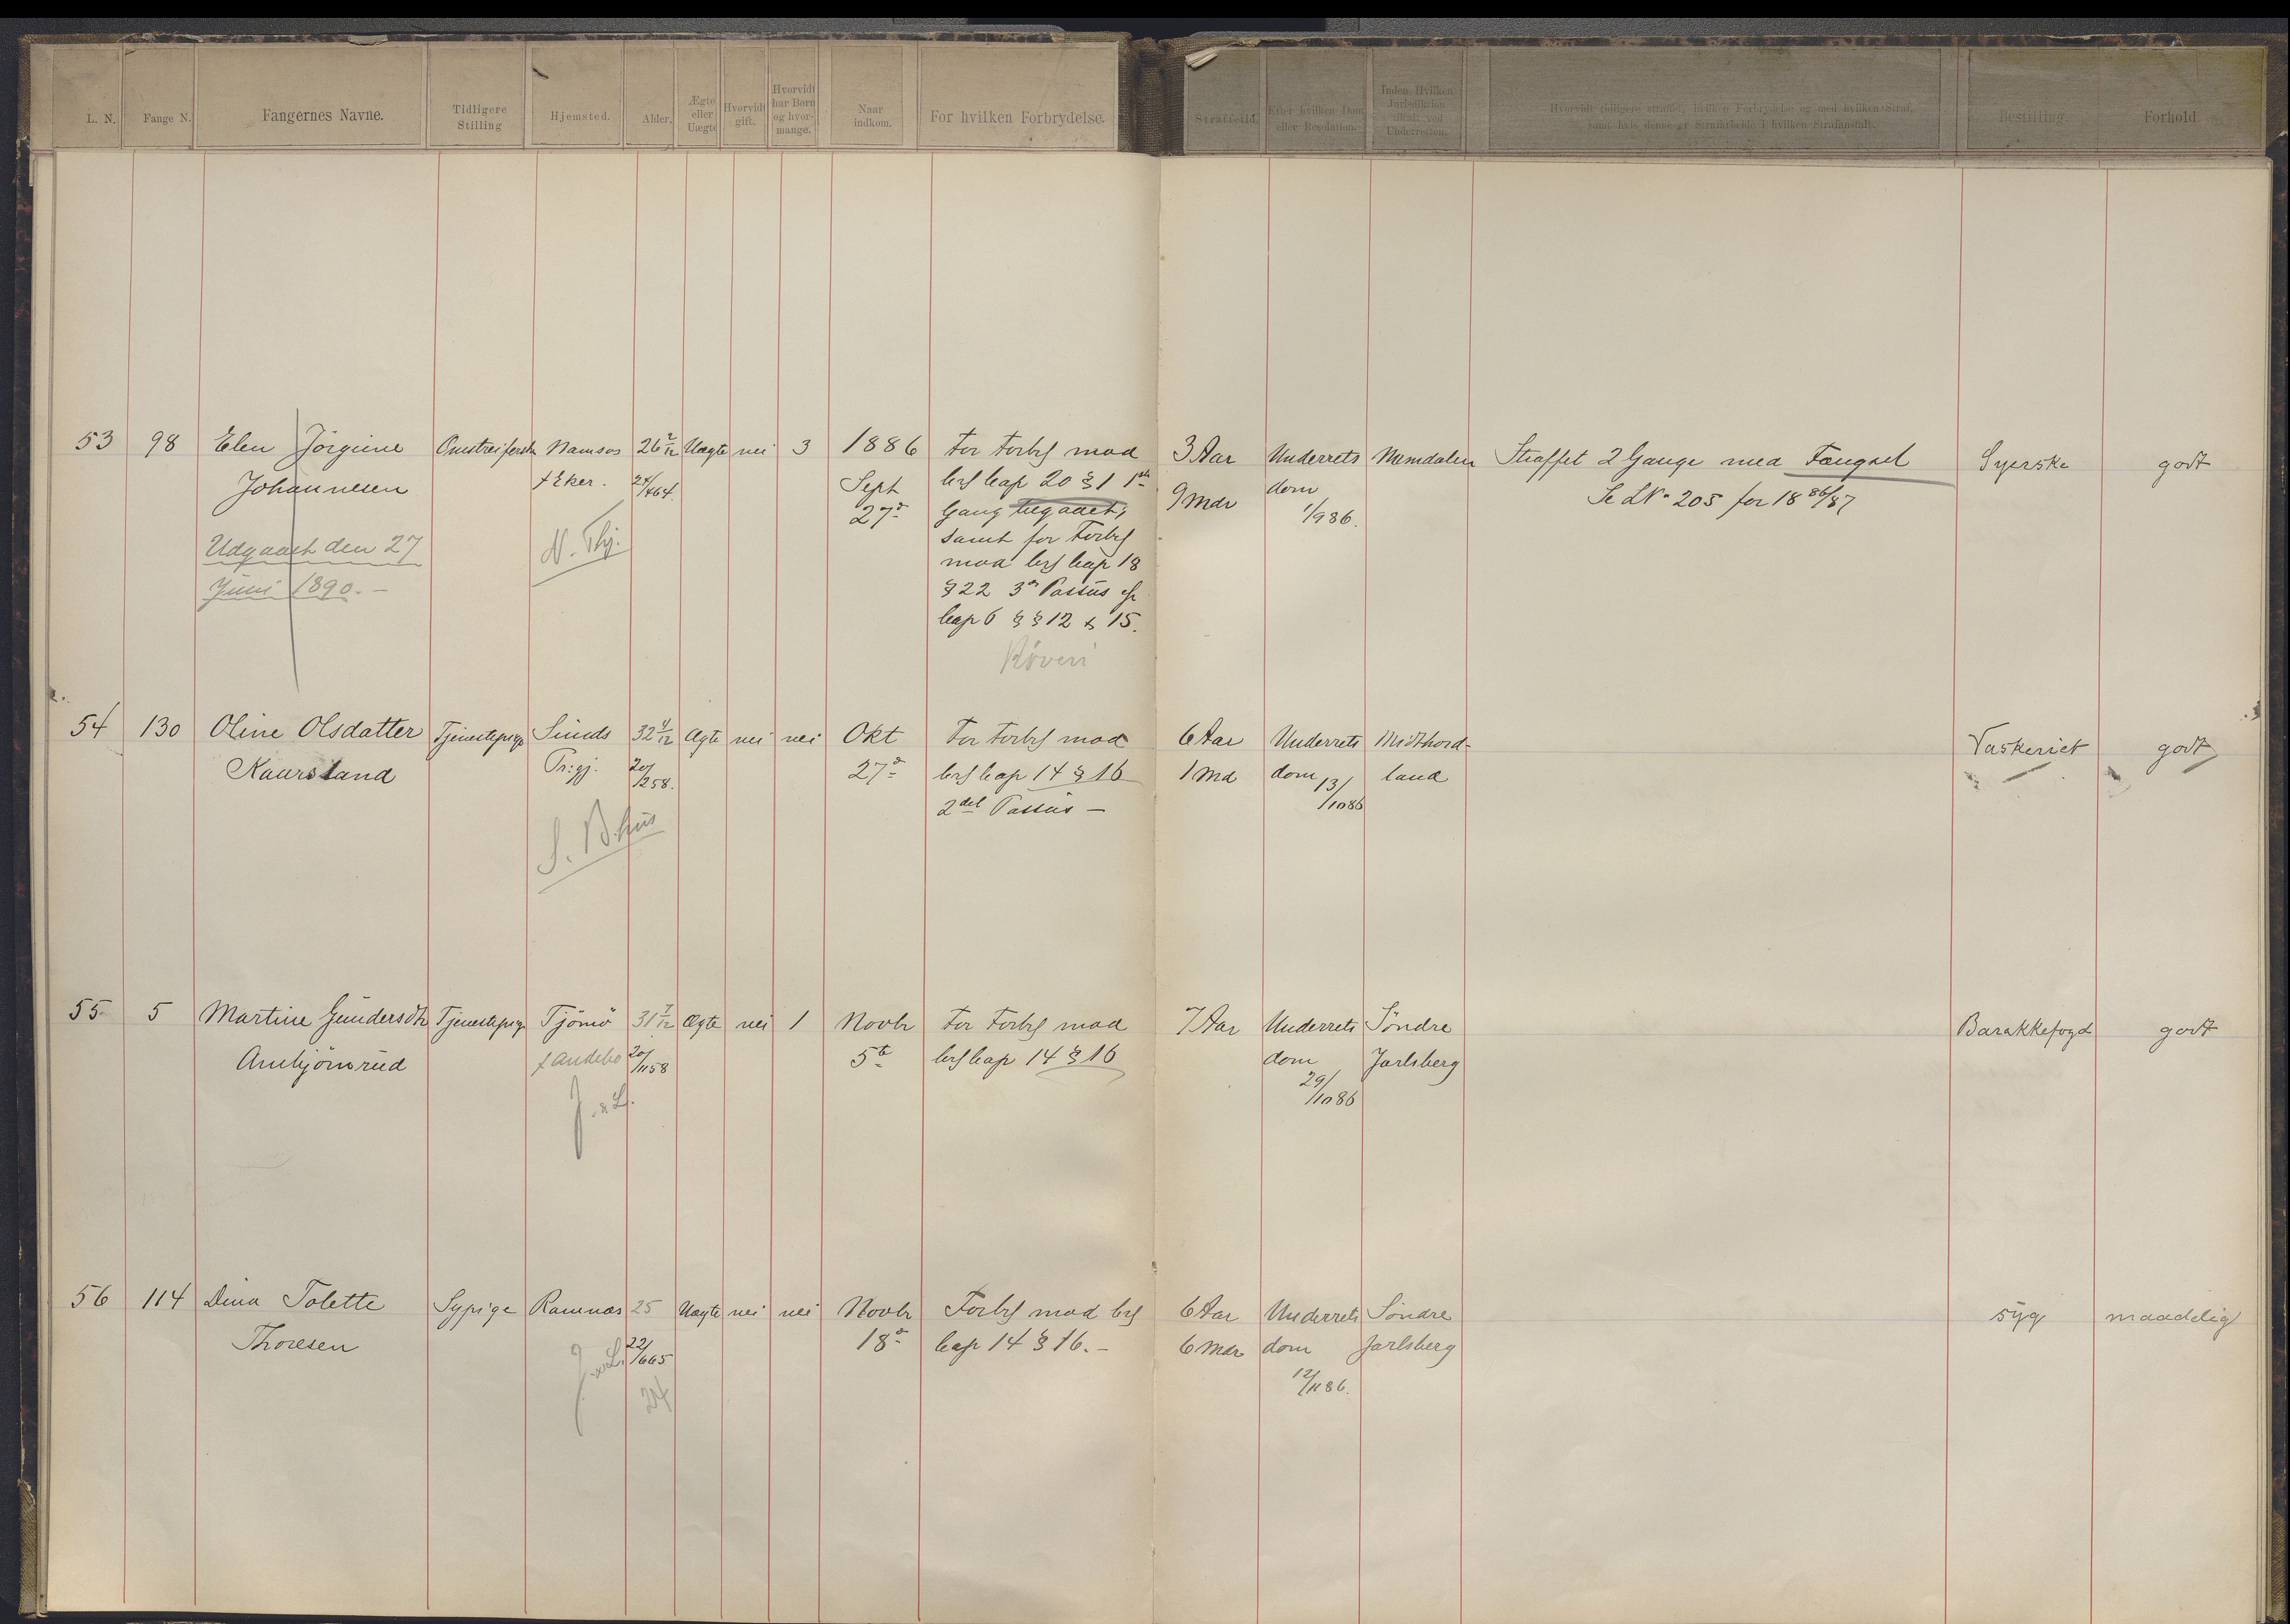 L. N.
Fange N.
Fangernes Navne.
Tidligere
Stilling
Hjemsted.
Alder.
Ægte
eller
Uægte
Hvorvidt
gift.
Hvorvidt
har Børn
og hvor-
mange.
Naar
indkom.
For hvilken Forbrydelse.
Straffetid.
Efter hvilken Dom
eller Resolution.
Inden Hvilken
Jurisdiktion
tiltalt ved
Underretten.
Hvorvidt tidligere straffet, hvilken Forbrydelse og med hvilken Straf,
samt hvis denne er Strafarbeide i hvilken Strafanstalt.
Bestilling
Forhold
53 98 Elen Jörgine Omstreiferske Namsos 26 2/12 Uægte nei 3 1886 For Forbr mod 3 Aar Underrets Namdalen Straffet 2 Gange med Fængsel Syerske godt
Johannesen f Eker. 24/464. Sept Crl Cap 20 § 1 1ste 9 Mdr dom Se LN. 205 for 18 86/87
27de Gang begaaet, 1/986.
Udgaaet den 27 N. Thj. samt for Forbr
Juni 1890. – mod Crl Cap 18
§ 22 3die Passus cfr
Cap 6 §§ 12 & 15.
Röveri
54 130 Oline Olsdatter Tjenestepige 32 4/12 Ægte nei nei Okt For Forbr mod 6 Aar Underrets Midthord- Vaskeriet godt
Kaarstand Tr:gj. 20/258. 27de Crl Cap 14 § 16 1 Md dom 13/1086 land
2det Passus –
S. B.hus
55 5 Martine Gundersdtr Tjenestepige Tjömö 31 7/12 Ægte nei 1 Novbr For Forbr mod 7 Aar Underrets Söndre Barakkefogd godt
Amhjömrud f Andebo 20/1158 5te Crl Cap 14 § 16 dom Jarlsberg
J. & L. 29/1086
56 114 Dina Tolette Sypige Ramnæs 25 Uægte nei nei Novbr Forbr mod Crl 6 Aar Underrets Söndre syg maadelig
Thoresen J. & L. 22/665 18de Cap 14 § 16. – 6 Mdr dom Jarlsberg
24 12/1186.